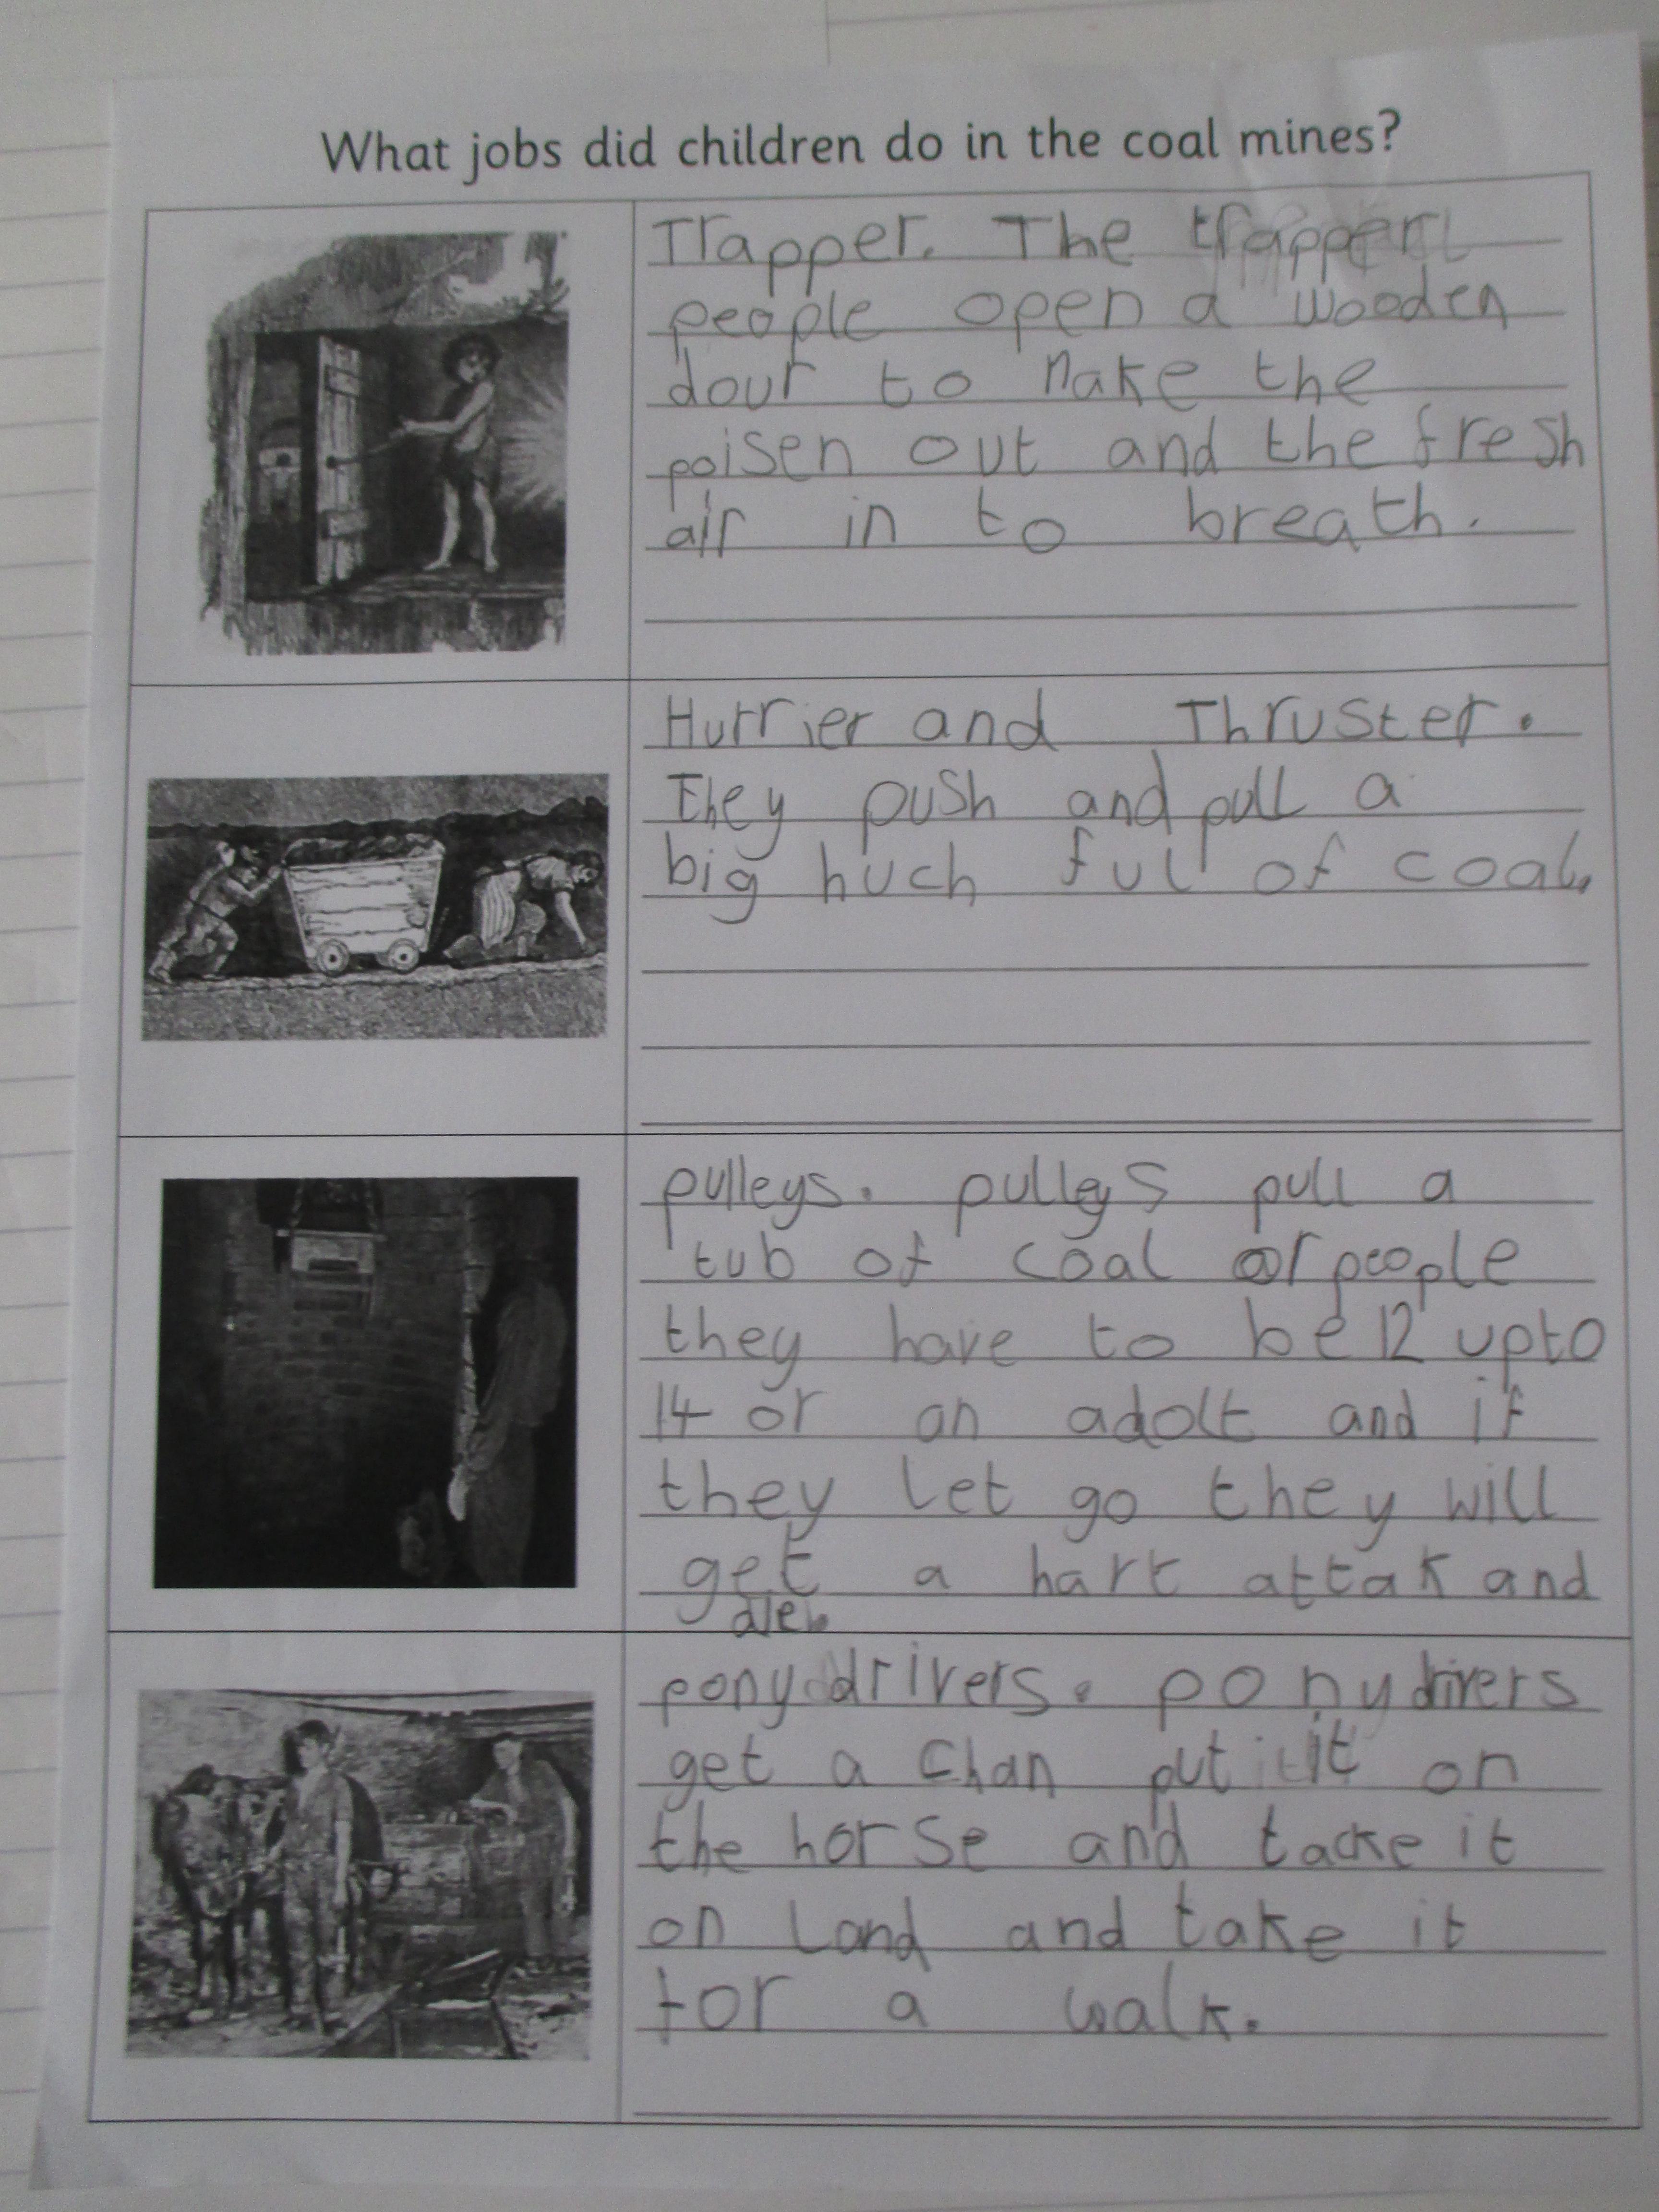 What jobs did children do in the coal mines?
Trapper. The trapper
people open a wooden
dour to make the
poisen out and the fresh
air in to breath.
Hurrier and Thruster.
They push and pull a
big huch ful of coal.
pulleys. pulleys pull a
tub of coal or people
they have to be 12 upto
14 or an adolt and if
they let go they will
get a hart attak and
die.
pony drivers. pony drivers
get a chan put it on
the horse and tacke it
on land and take it
for a walk.